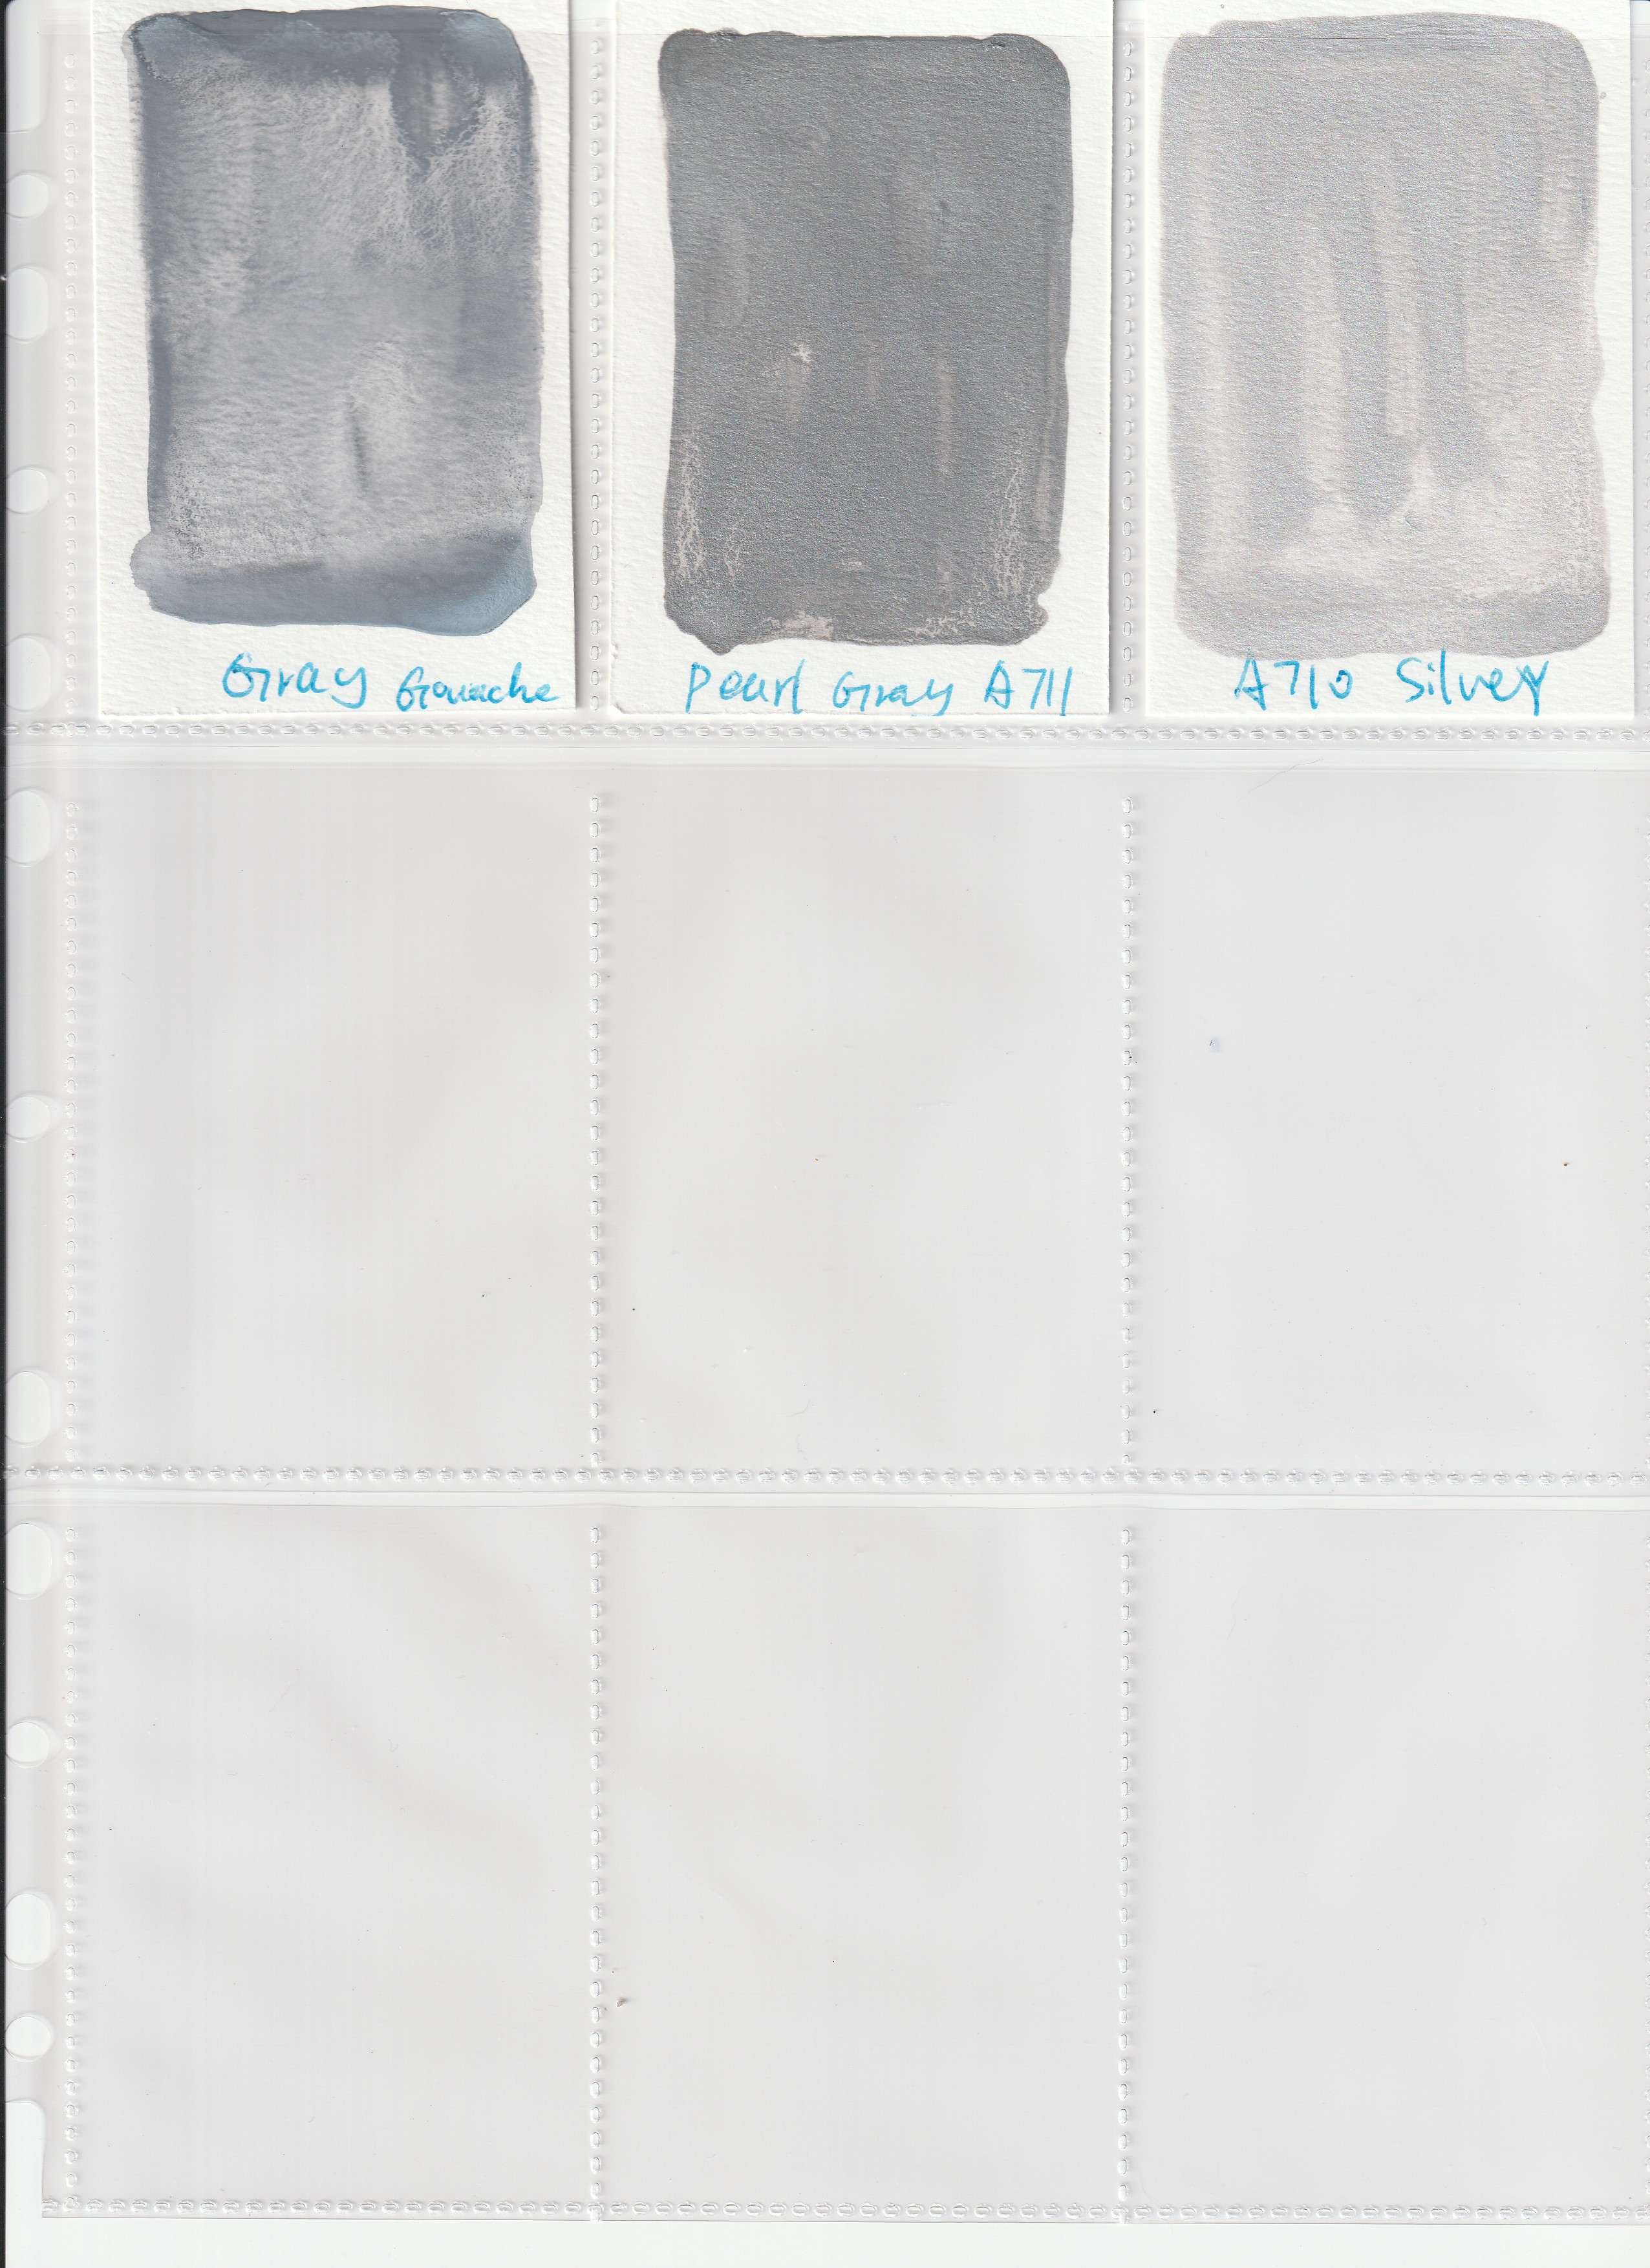 Gray Gouache
Pearl Gray A711
A710 Silver